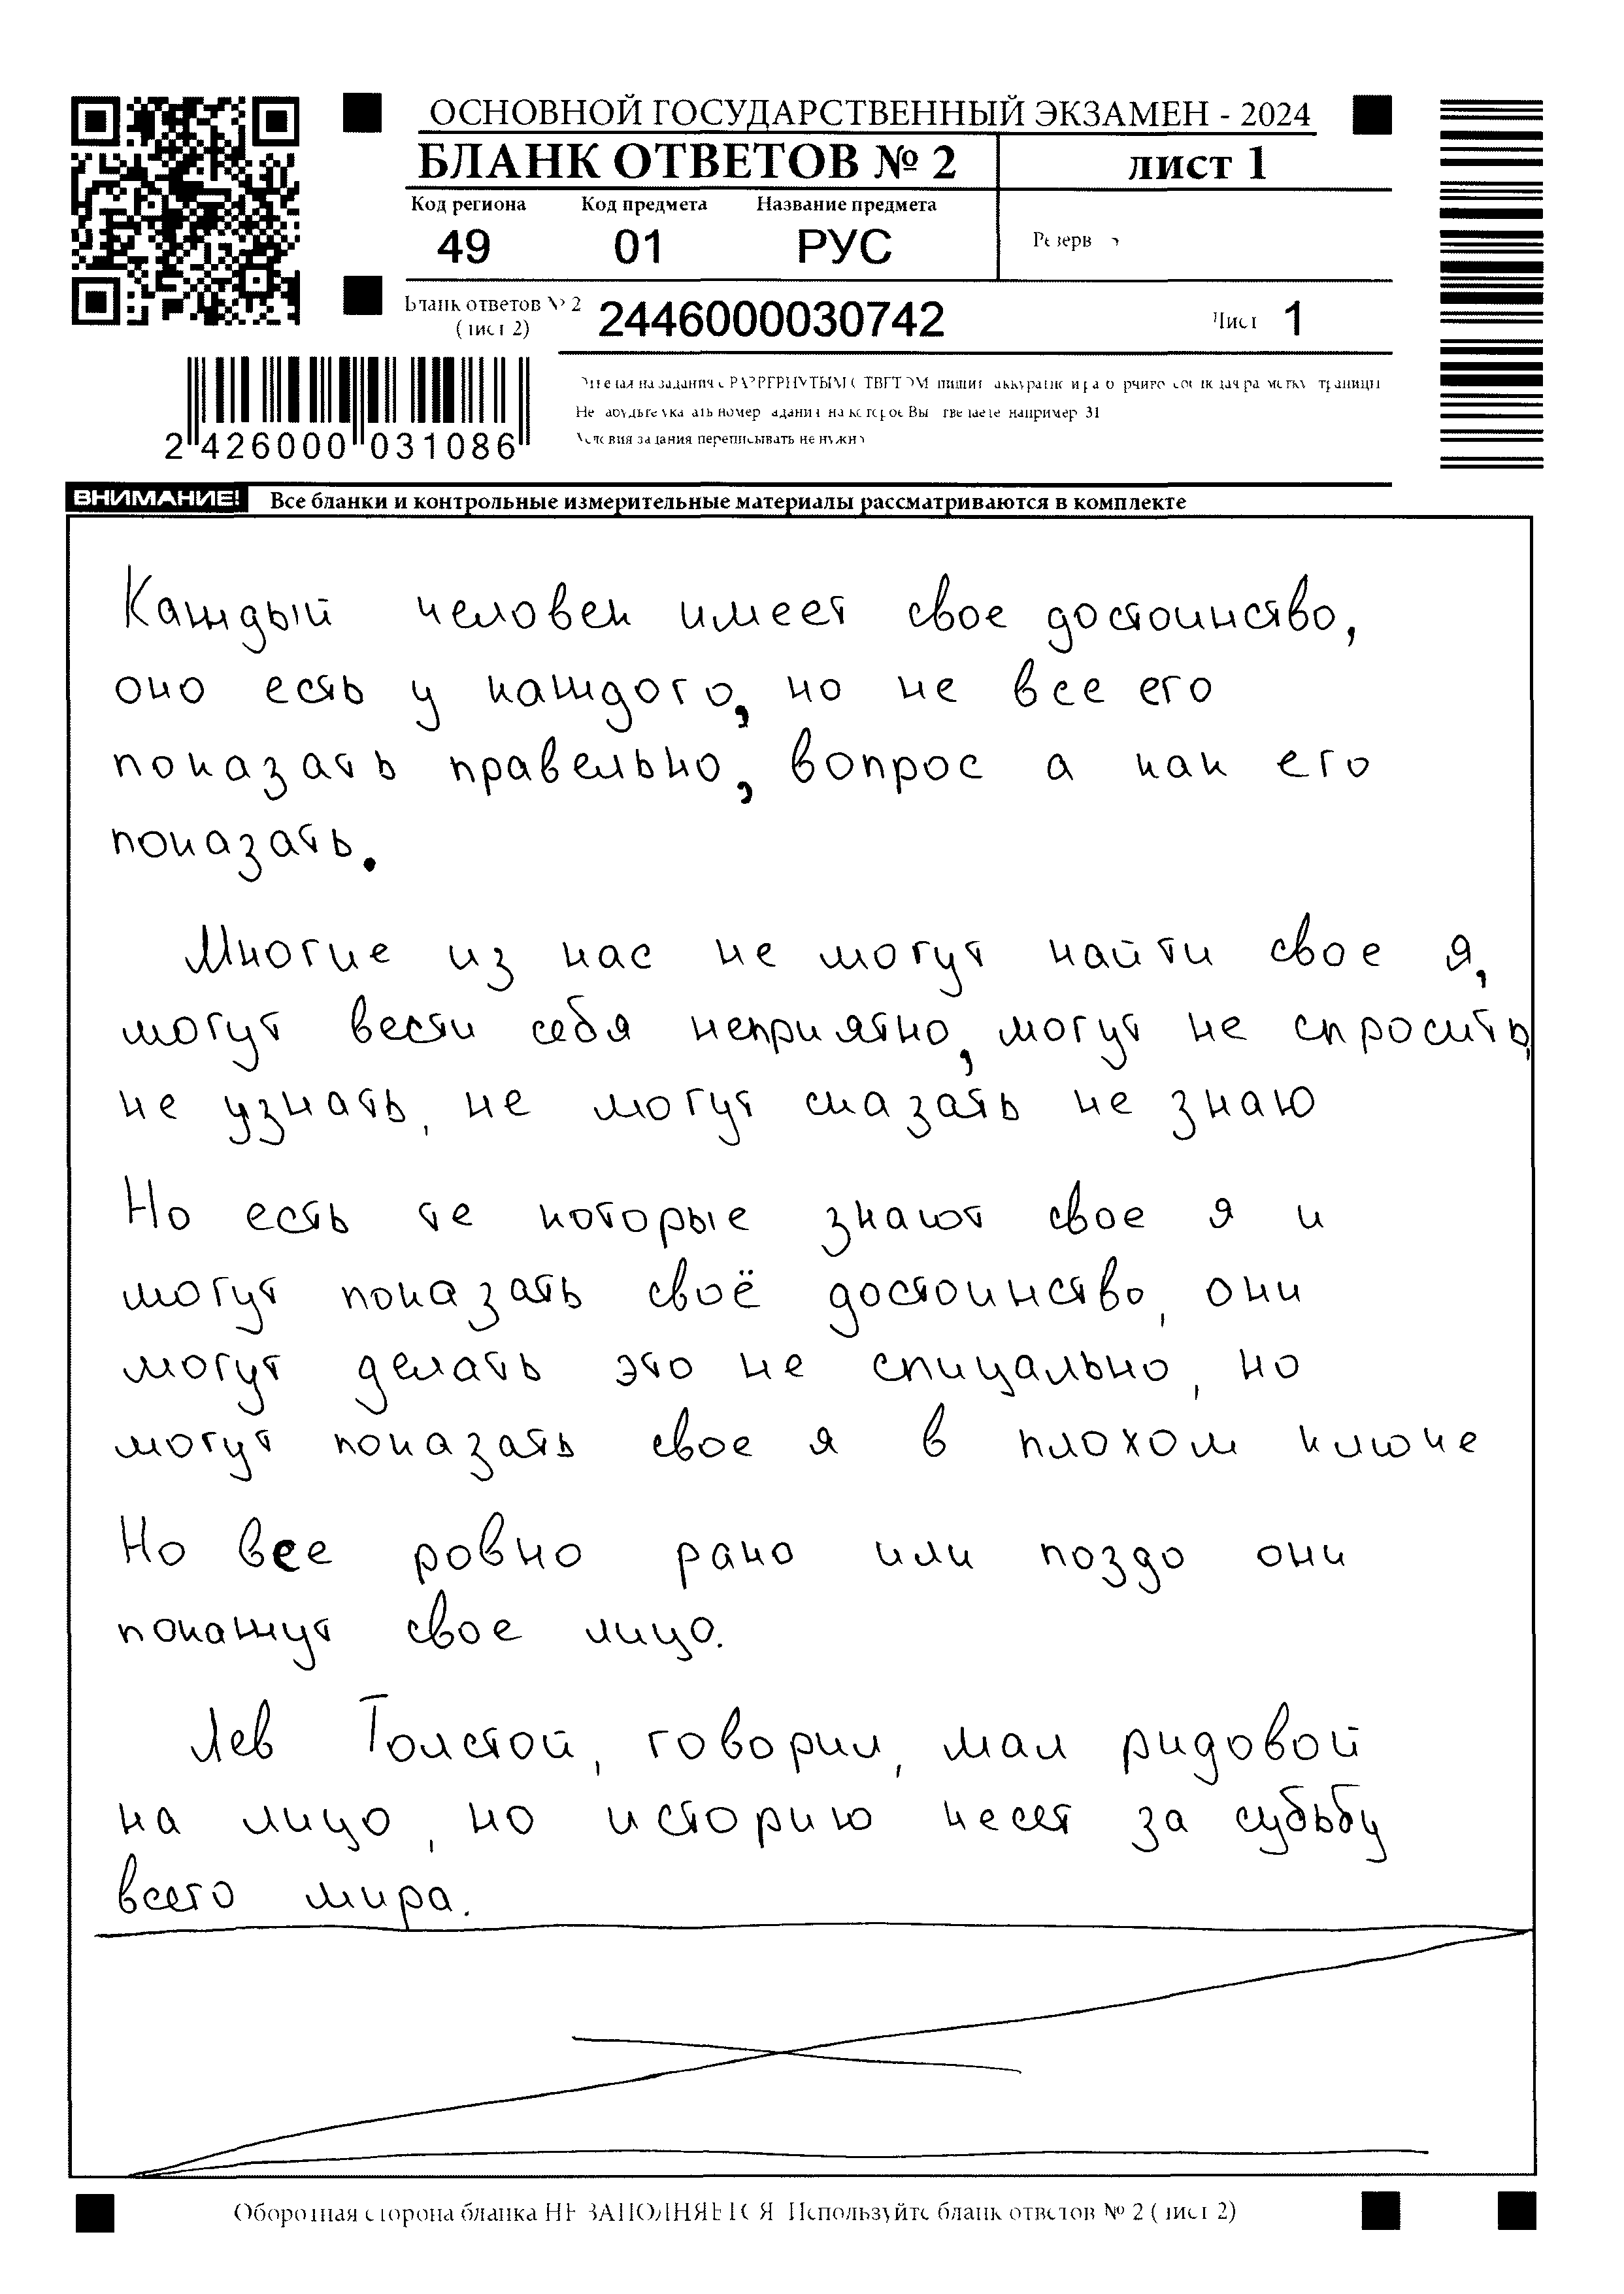 ОСНОВНОЙ ГОСУДАРСТВЕННЫЙ ЭКЗАМЕН - 2024
БЛАНК ОТВЕТОВ № 2
лист 1
Код региона Код предмета Название предмета
49 01 РУС
Резерв
Бланк ответов № 2 (лист 2) 2446000030742 Лист 1
2 426000 031086
Условия задания переписывать не нужно
ВНИМАНИЕ! Все бланки и контрольные измерительные материалы рассматриваются в комплекте
Каждый человек имеет свое достоинство,
оно есть у каждого, но не все его
показать правельно, вопрос а как его
показать.
Многие из нас не могут найти свое я,
могут вести себя неприятно, могут не спросить,
не узнать, не могут сказать не знаю
Но есть те которые знают свое я и
могут показать своё достоинство, они
могут делать это не спицально, но
могут показать свое я в плохом ключе
Но все ровно рано или поздо они
покажут свое лицо.
Лев Толстой, говорил, мал ридовой
на лицо, но историю несет за судьбу
всего мира.
Оборотная сторона бланка НЕ ЗАПОЛНЯЕТСЯ. Используйте бланк ответов № 2 (лист 2)